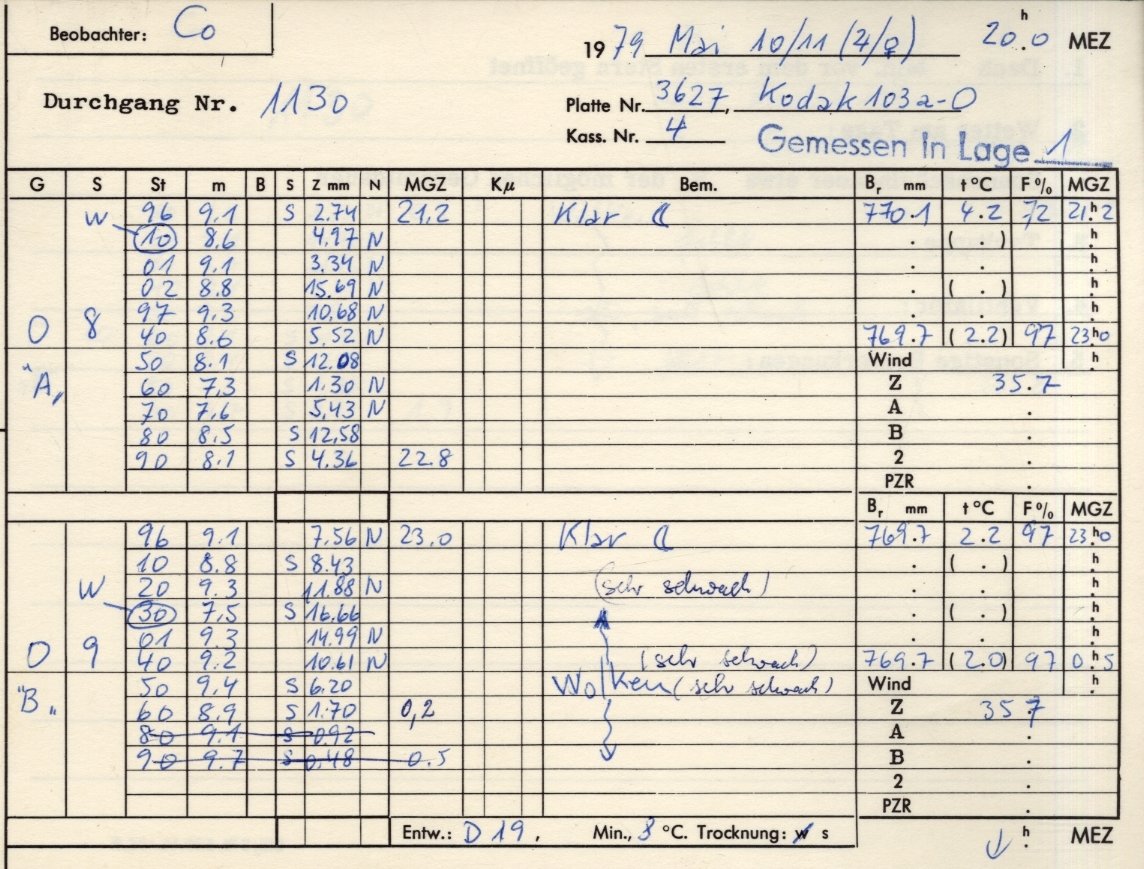 Beobachter: Co
1979 Mai 10/11 (4/♀) 20.h0 MEZ
Durchgang Nr. 1130
Platte Nr. 3627, Kodak 103a-O
Kass. Nr. 4
Gemessen in Lage 1
G S St m B S Z mm N MGZ Kμ Bem. Br mm t °C F % MGZ
W 96 9.1 S 2.74 21,2 Klar ☾ 770.1 4.2 72 21.h2
(10) 8.6 4.97 N . ( . ) .h
01 9.1 3.34 N . . .h
02 8.8 15.69 N . ( . ) .h
97 9.3 10,68 N . . .h
O 8 40 8.6 5,52 N 769.7 (2.2) 97 23.h0
50 8.1 S 12.08 Wind .h
"A" 60 7,3 1.30 N Z 35.7
70 7,6 5,43 N A .
80 8.5 S 12,58 B .
90 8.1 S 4.36 22.8 2 .
PZR .
Br mm t °C F % MGZ
96 9.1 7.56 N 23.0 Klar ☾ 769.7 2.2 97 23.h0
10 8.8 S 8.43 . ( . ) .h
W 20 9.3 11.88 N (sehr schwach) . . .h
(30) 7,5 S 16.66 . ( . ) .h
01 9.3 14.99 N . . .h
O 9 40 9.2 10.61 N (sehr schwach) 769.7 (2.0) 97 0.h5
50 9.4 S 6.20 Wolken (sehr schwach) Wind .h
"B" 60 8.9 S 1.70 0,2 Z 35.7
80 9.1 S 0.92 A .
90 9.7 S 0.48 0.5 B .
2 .
PZR .
Entw.: D 19. Min., 8 °C. Trocknung: w s .h MEZ